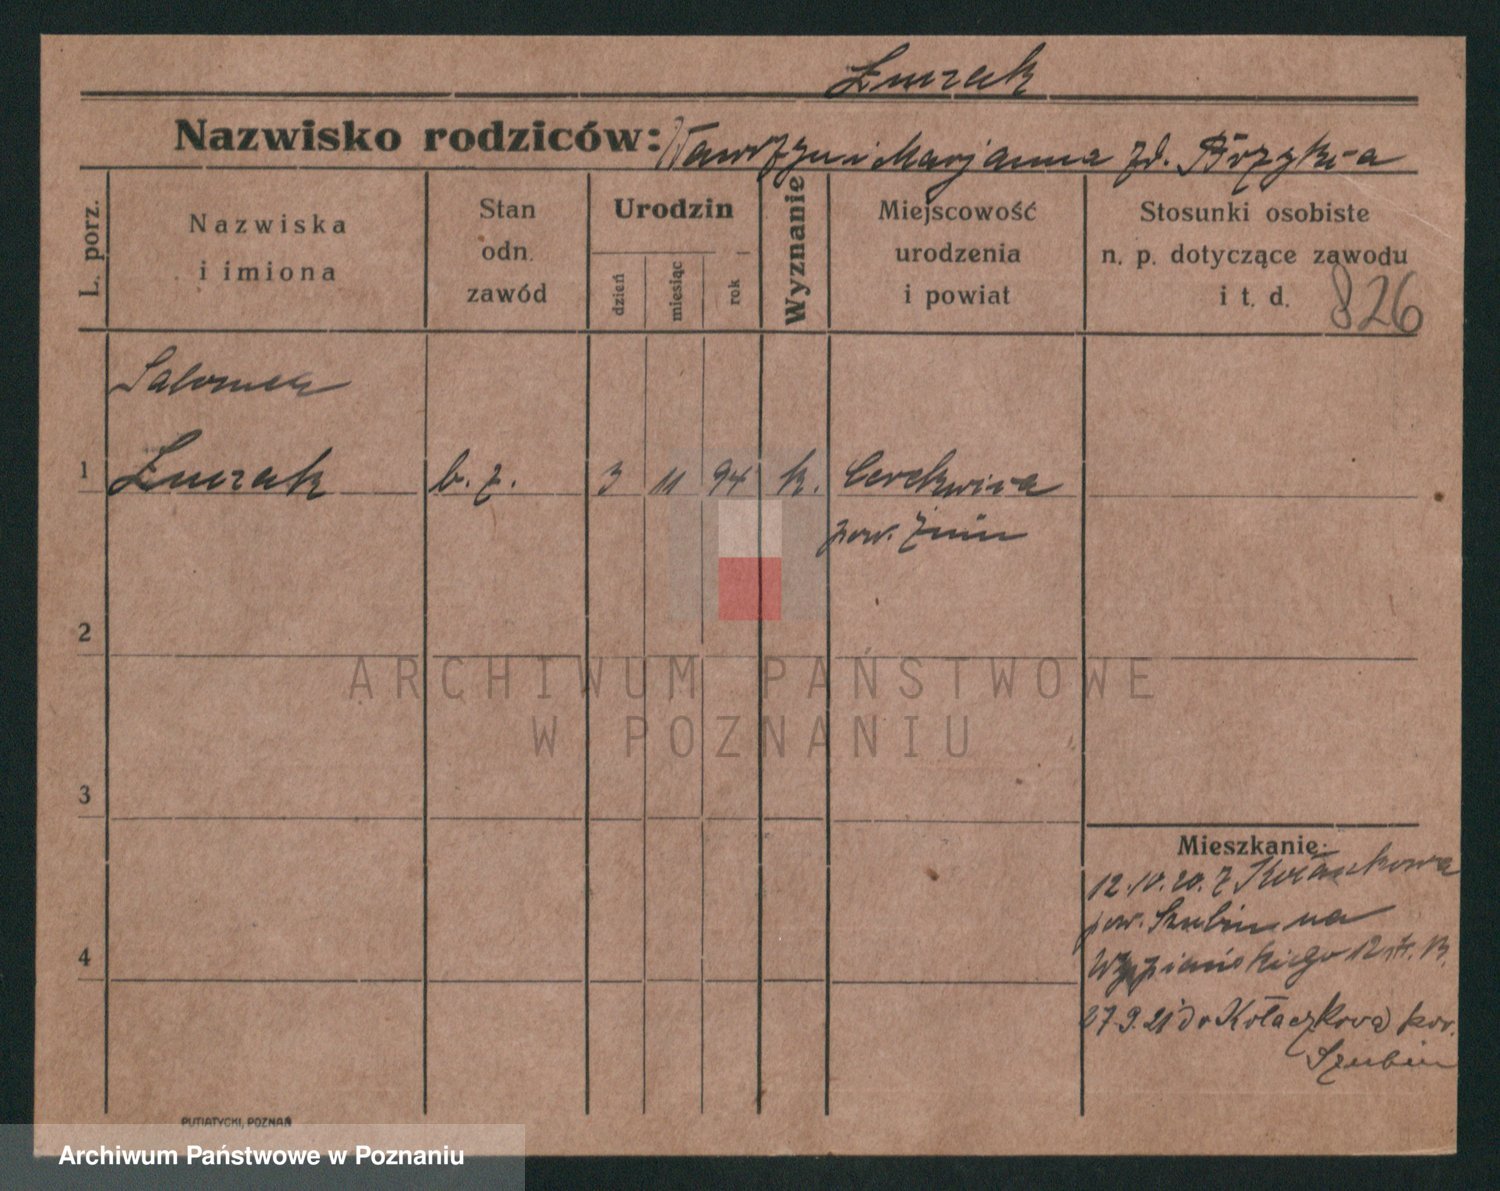 Łuczak
Nazwisko rodziców: Wawrzyn i Marjanna zd.
L. porz.
Nazwiska
i imiona
Stan
odn.
zawód
Urodzin
dzień
miesiąc
rok
Wyznanie
Miejscowość
urodzenia
i powiat
Stosunki osobiste
n. p. dotyczące zawodu
i t. d.
826
Salomea
1 Łuczak b. z. 3 11 94 k. Cerekwica
pow. Żnin
2
ARCHIWUM PAŃSTWOWE
W POZNANIU
3
Mieszkanie:
12.10.20. z Kołaczkowa
pow. Szubin na
4
Wyspiańskiego 12
27.9.21 do Kołaczkowa pow.
Szubin
PUTIATYCKI, POZNAŃ
Archiwum Państwowe w Poznaniu